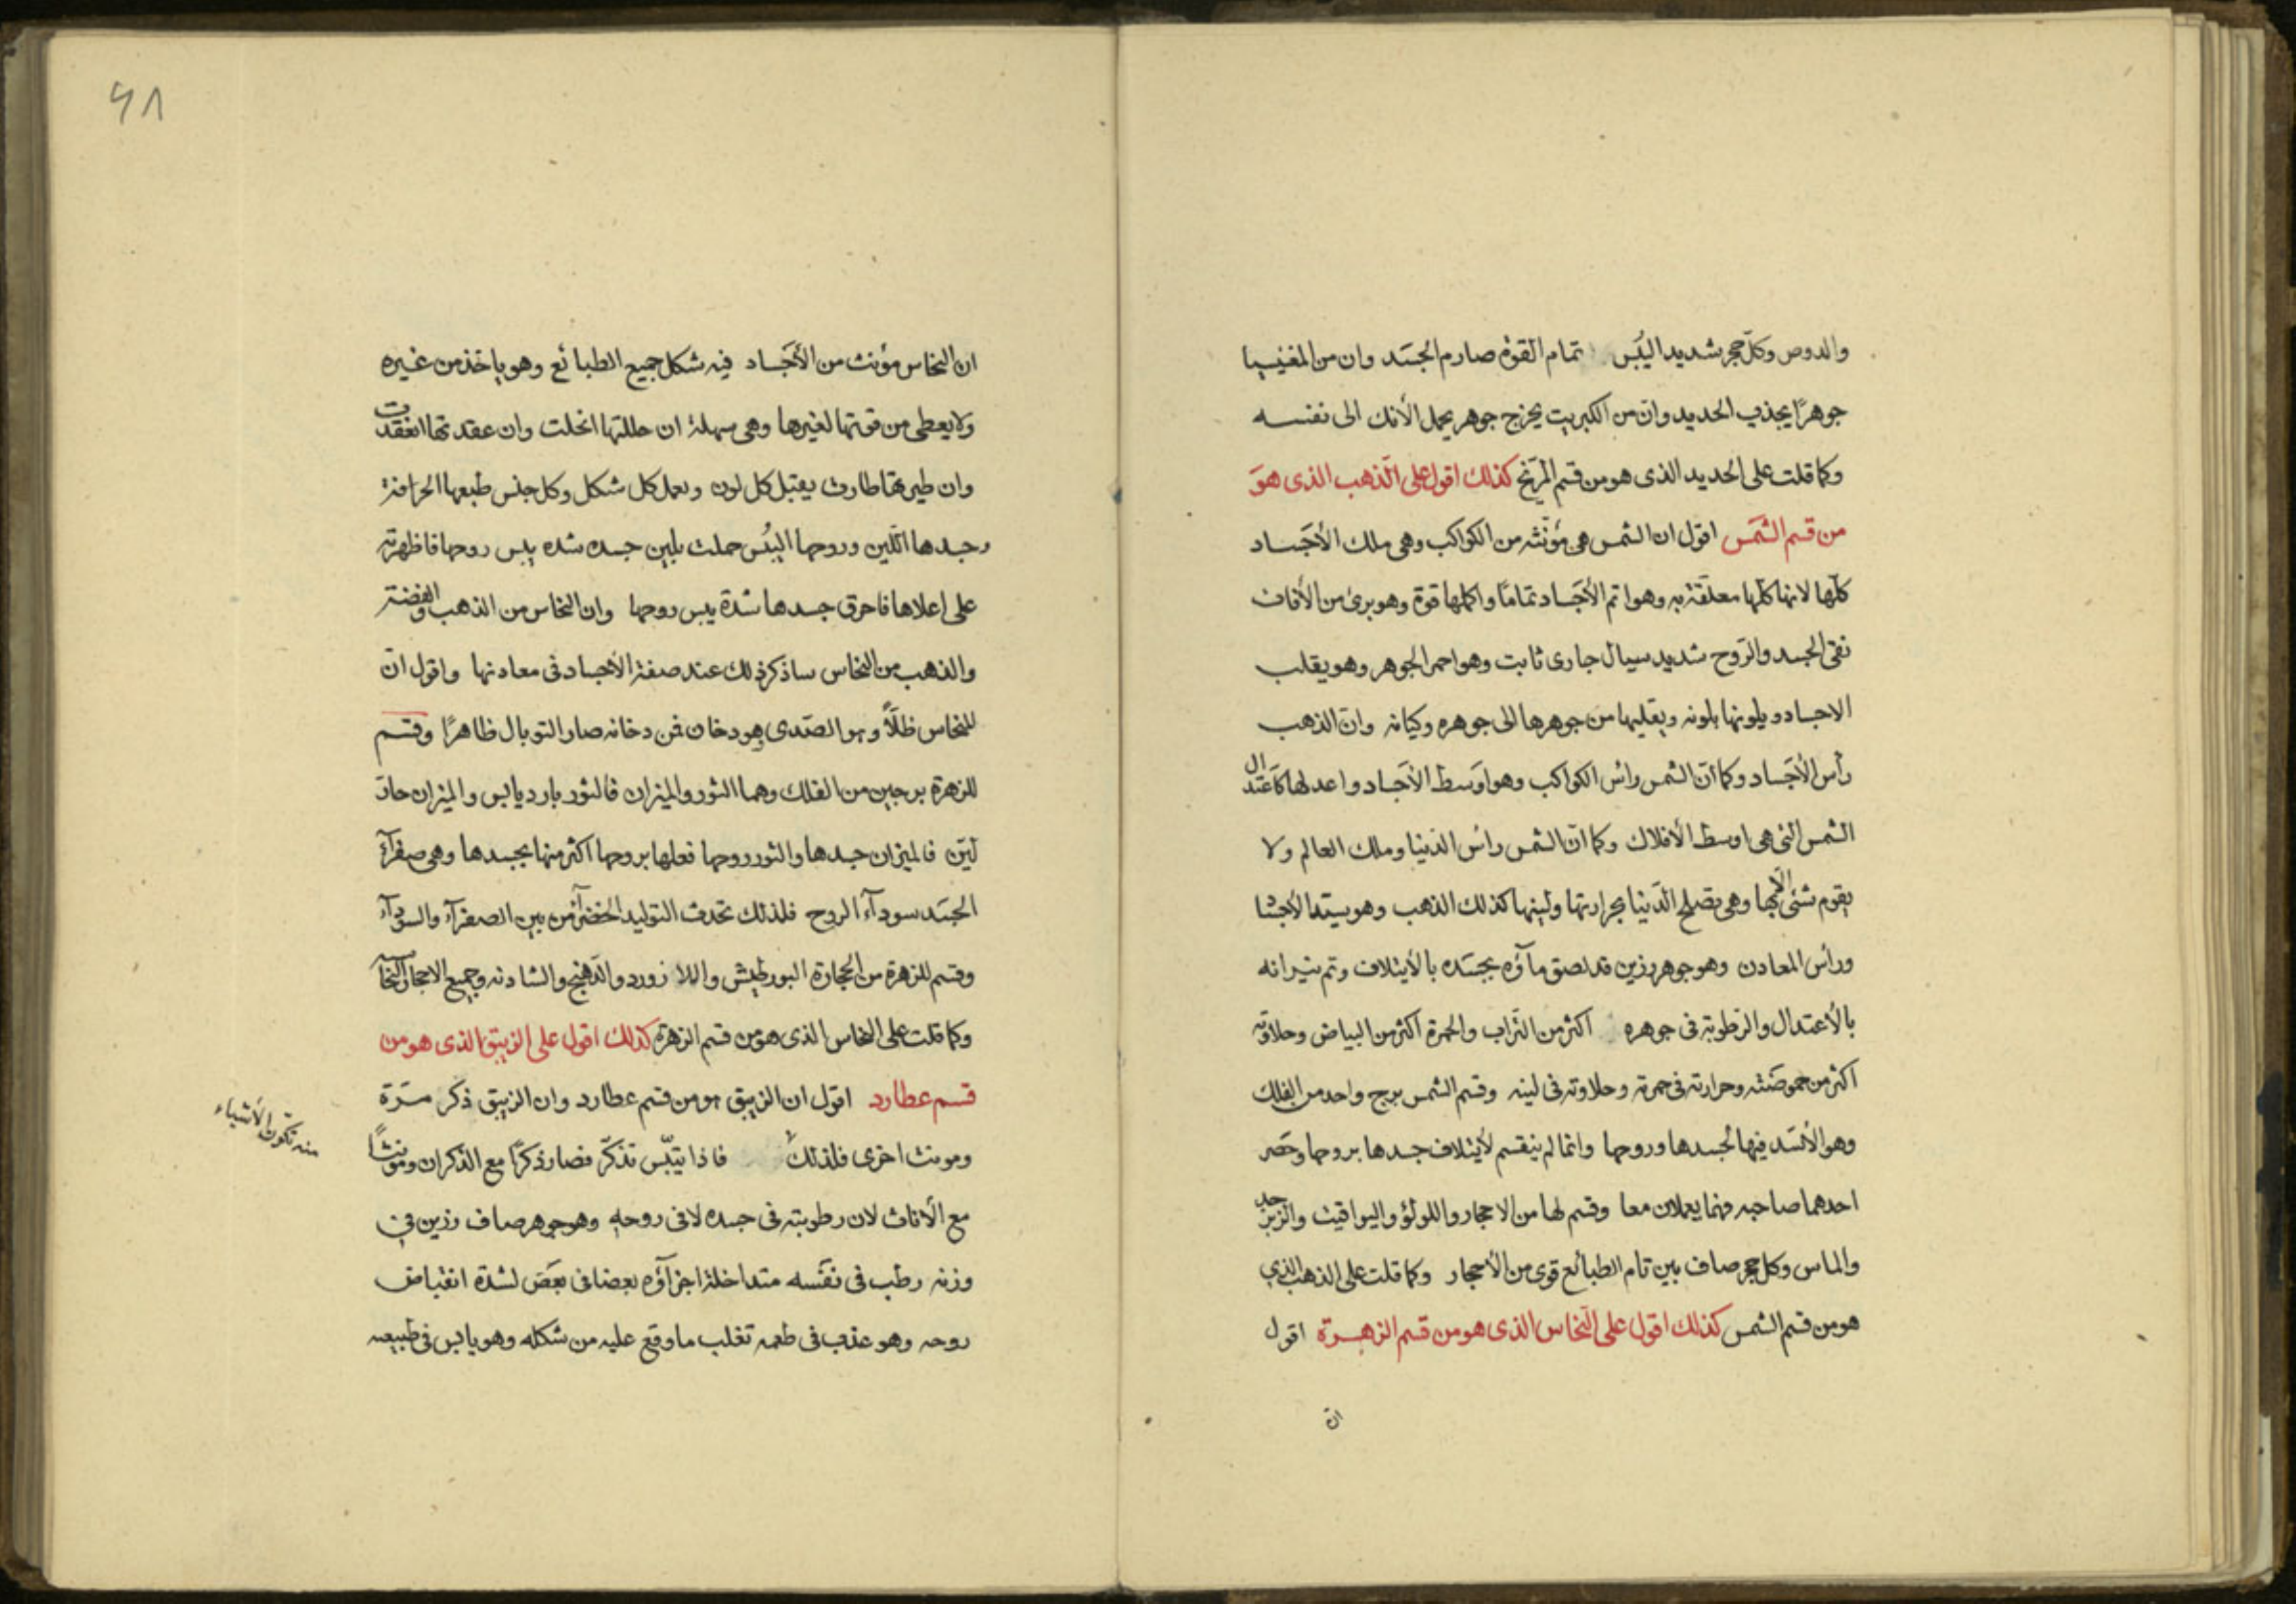 والدوص وكل حجر شديد اليُبْس تمام القوة صارم الجسَد وان من المغنيسيا
جوهرًا يجذب الحديد وان من الكبريت يخرج جوهر يحمل الأنك الى نفسه
وكما قلت على الحديد الذى هو من قسم المرّيخ كذلك اقول على الذهب الذى هوَ
من قسم الشمَس اقول ان الشمس هى مؤنّثه من الكواكب وهى ملك الأجَساد
كلّها لانها كلّها معلّقة به وهو اتم الأجَساد تمامًا واكملها قوة وهو برئ من الأفات
نقى الجسد والرّوح شديد سيال جارى ثابت وهو احمر الجوهر وهو يقلب
الاجساد ويلونها بلونه ويقلبها من جوهرها الى جوهره وكيانه وان الذهب
رأس الأجَساد وكما انّ الشمس رائس الكواكب وهو اوَسط الأجَساد واعدلها كاعتدال
الشمس التى هى اوسط الأفلاك وكما انّ الشمس رائس الدّنيا وملك العالم ولا
يقوم شئى الّا بها وهى تصلح الدّنيا بحرارتها ولينها كذلك الذهب وهو سيّد الأجساد
ورأس المعادن وهو جوهر رزين قد لصق مآؤه بجسَده بالأيتلاف وتم بنيرانه
بالأعتدال والرّطوبة فى جوهره اكثر من التّراب والحمرة اكثر من البياض وحلاوته
اكثر من حموضَته وحرارته فى حمرته وحلاوته فى لينه وقسم الشمس برج واحد من الفلك
وهو الأسَد فيها لجسدها وروحها وانما لم ينقسم لأيتلاف جسدها بروحها وحَصر
احدهما صاحبه فهما يعملان معا وقسم لها من الاحجار واللولؤ واليواقيت والزبرجد
والماس وكل حجر صاف بين تام الطبائع قوى من الأحجار وكما قلت على الذهب الذي
هو من قسم الشمس كذلك اقول على النّحاس الذى هو من قسم الزهرة اقول
ان
٤٨
ان النحاس مؤنث من الأجَساد فيه شكل جميع الطبائع وهو ياخذ من غيره
ولا يعطى من قوتها لغيرها وهى سهلة ان حللتها انحلت وان عقدتها انعقدت
وان طيرتها طارت يقبل كل لون ويعمل كل شكل وكل جنس طبعها الحرافة
وجسدها اللّين وروحها اليبُس حملت بلين جسده شده يبس روحها فاظهرته
على اعلاها فاحرق جسدها شدة يبس روحها وان النحاس من الذهب والفضة
والذهب من النحاس ساذكر ذلك عند صفة الأجساد فى معادنها واقول انّ
للنحاس ظلّاً وهو الصّدى هو دخان فمن دخانه صار التوبال ظاهرًا وقسم
للزهرة برجين من الفلك وهما الثور والميزان فالثور بارد يابس والميزان حار
ليّن فالميزان جسدها والثور روحها فعلها بروحها اكثر منها بجسدها وهى صفرآء
الجسَد سودآء الروح فلذلك تحدث التوليد الخضرآء من بين الصفرآء والسودآء
وقسم للزهرة من الحجارة البورطيش واللازورد والدّهنج والشادنه وجميع الاحجار النحا
وكما قلت على النحاس الذى هو من قسم الزهرة كذلك اقول على الزيبق الذى هو من
قسم عطارد اقول ان الزيبق هو من قسم عطارد وان الزيبق ذكر مرّة
ومونث اخرى فلذلك فاذا تيبّس تذكّر فصار ذكرًا مع الذكران ومونثًا
منه تكون الأشياء
مع الأناث لان رطوبته فى جسده لا فى روحه وهو جوهر صاف رزين في
وزنه رطب فى نفَسه متداخلة اجزآؤه بعضا فى بعَض لشدة انقباض
روحه وهو عذب فى طعمه تغلب ما وقع عليه من شكله وهو يابس فى طبيعه